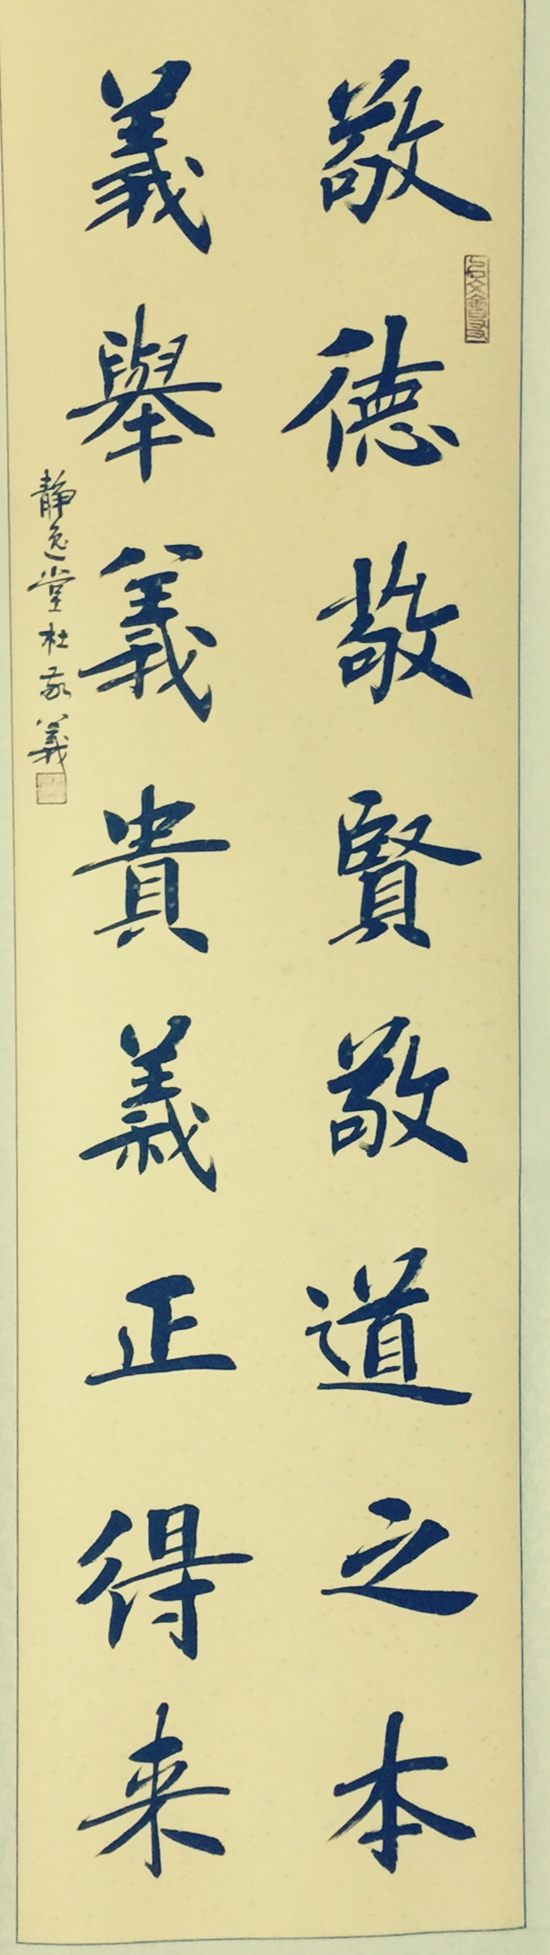 敬德敬賢敬道之本
義舉義貴義正得来
靜逸堂杜敬義